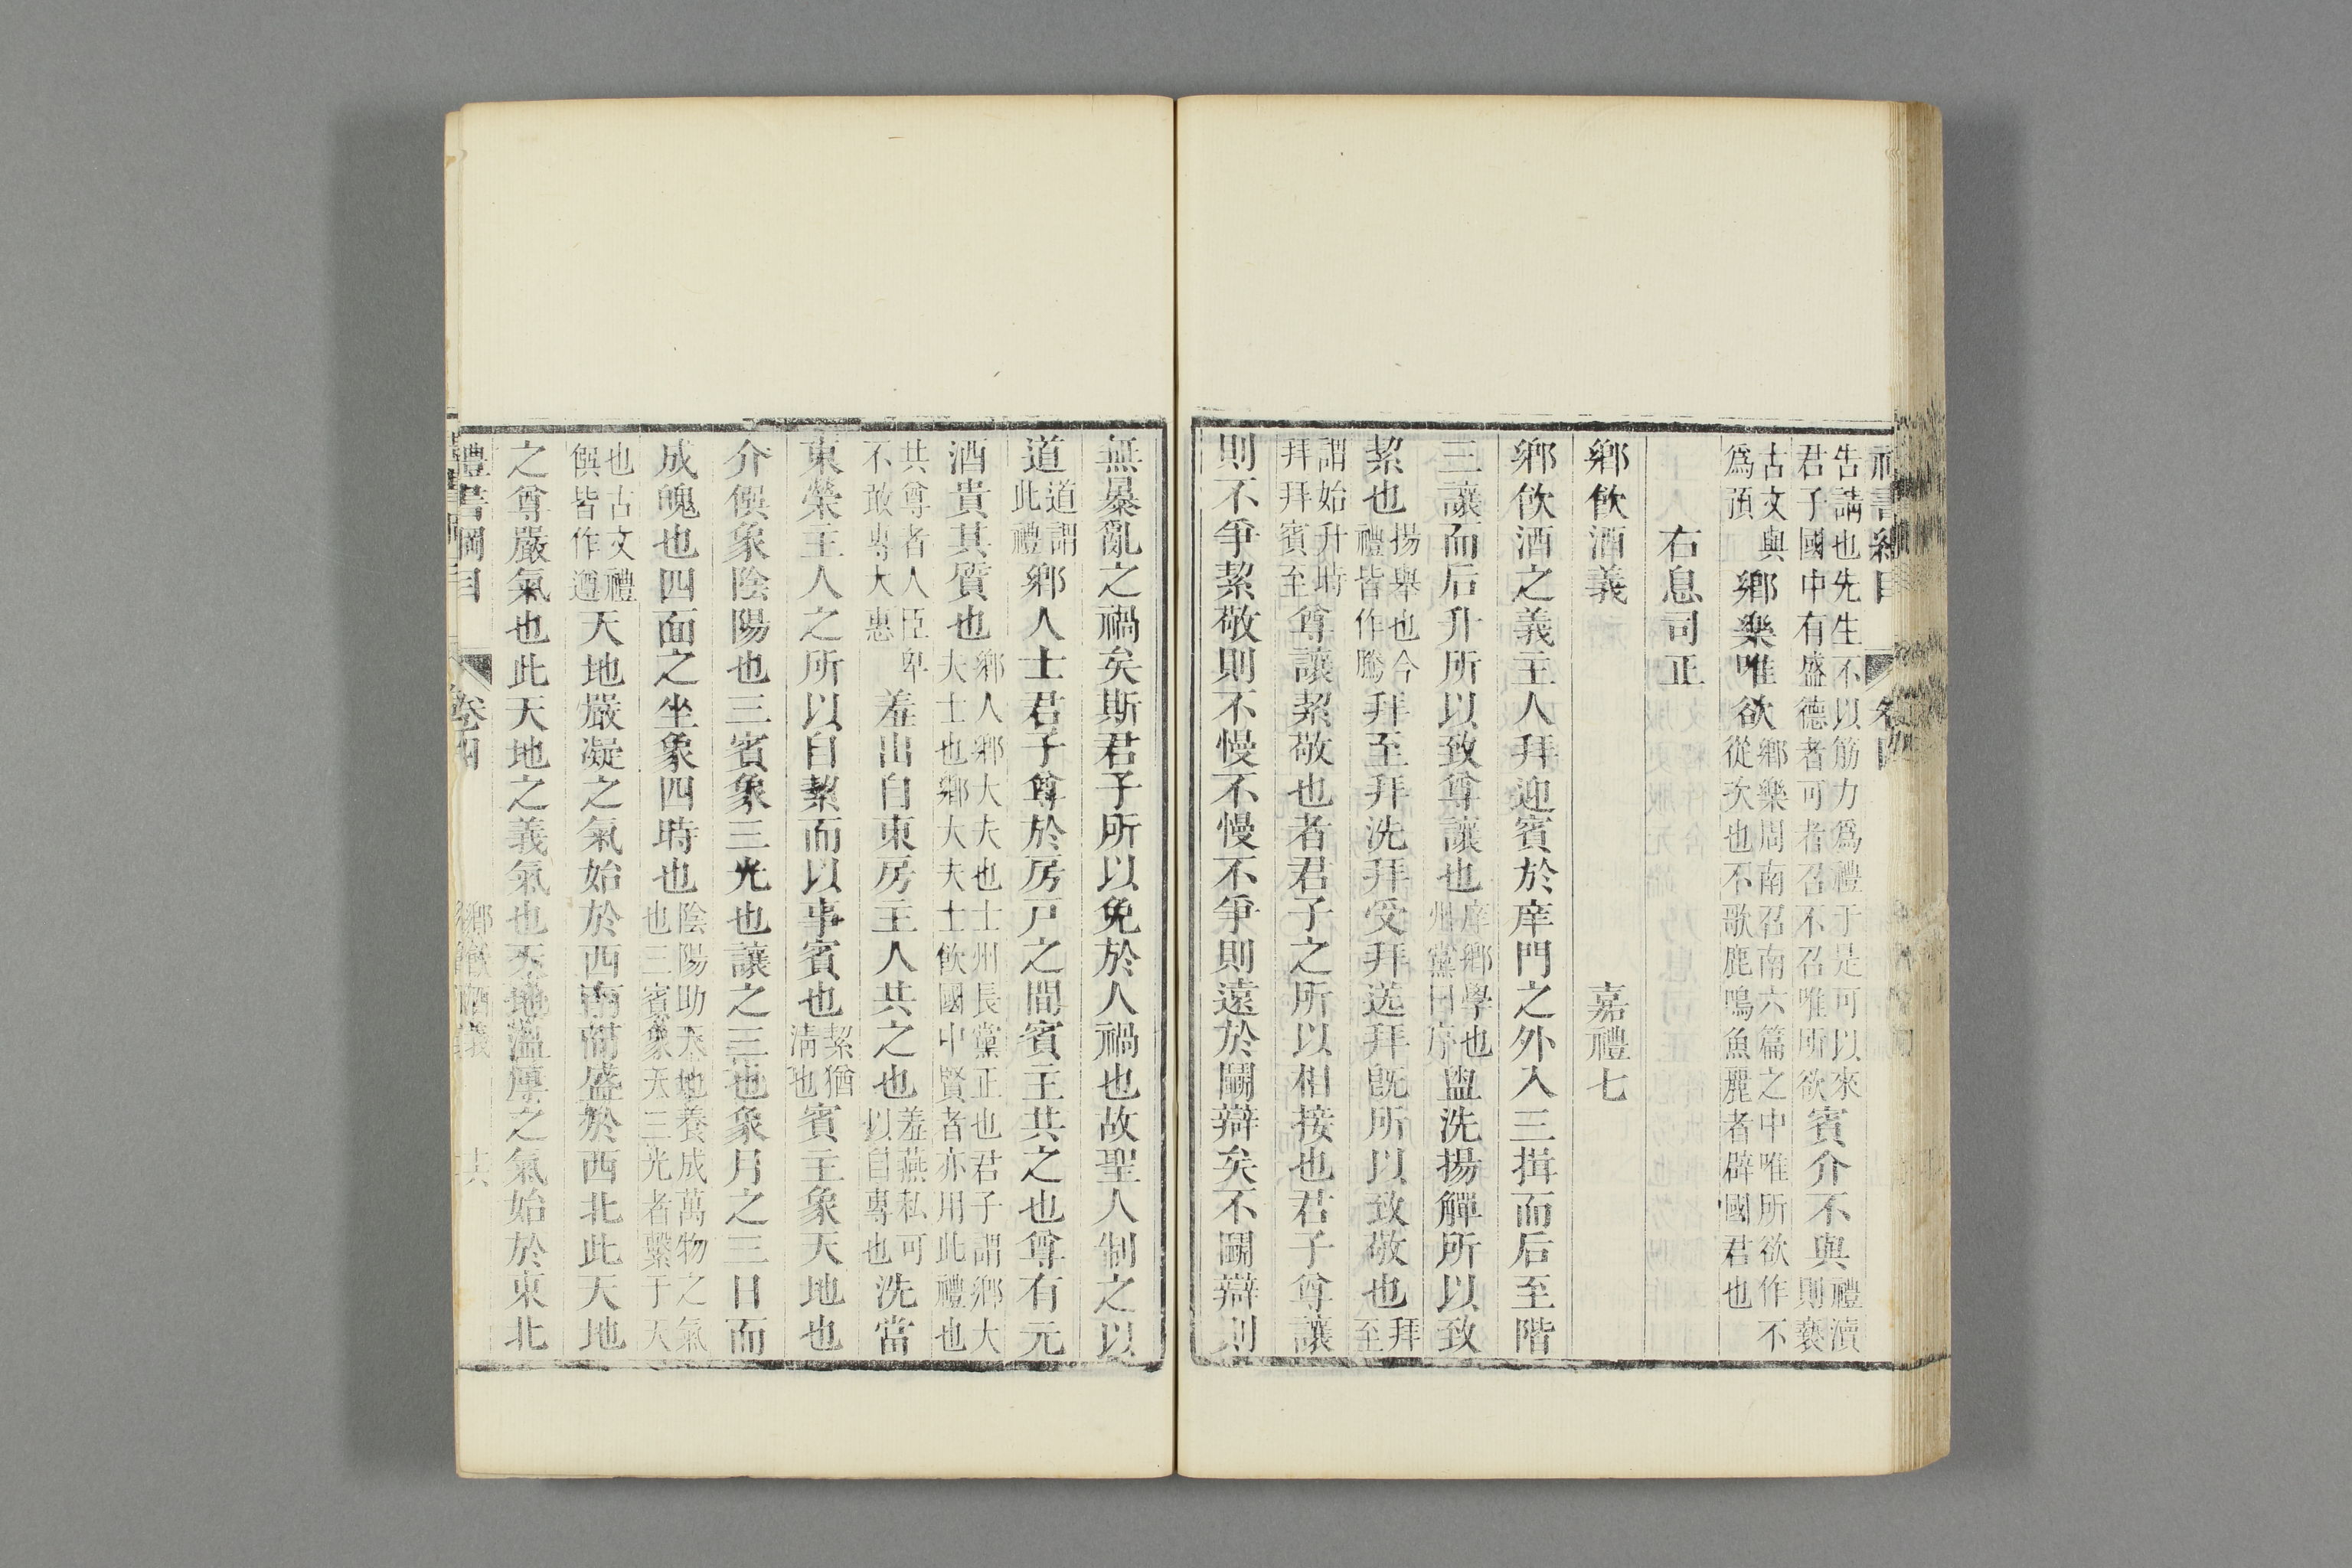 告請也先生不以筋力爲禮于是可以來
君子國中有盛德者可者召不召唯所欲
賓介不與
禮瀆
則褻
古文與
爲預
鄉樂唯欲
鄉樂周南召南六篇之中唯所欲作不
從次也不歌鹿鳴魚麗者辟國君也
右息司正
鄉飲酒義　嘉禮七
鄉飲酒之義主人拜迎賓於庠門之外入三揖而后至階
三讓而后升所以致尊讓也
庠鄉學也
州黨曰序
盥洗揚觶所以致
絜也
揚舉也今
禮皆作騰
拜至拜洗拜受拜送拜旣所以致敬也
拜
至
謂始升時
拜拜賓至
尊讓絜敬也者君子之所以相接也君子尊讓
則不爭絜敬則不慢不慢不爭則遠於鬬辯矣不鬬辯則
無暴亂之禍矣斯君子所以免於人禍也故聖人制之以
道
道謂
此禮
鄉人士君子尊於房戸之間賓主共之也尊有元
酒貴其質也
鄉人鄉大夫也士州長黨正也君子謂鄉大
夫士也鄉大夫士飲國中賢者亦用此禮也
共尊者人臣卑
不敢專大惠
羞出自東房主人共之也
羞燕私可
以自專也
洗當
東榮主人之所以自絜而以事賓也
絜猶
淸也
賓主象天地也
介僎象陰陽也三賓象三光也讓之三也象月之三日而
成魄也四面之坐象四時也
陰陽助天地養成萬物之氣
也三賓象天三光者繫于天
也古文禮
僎皆作遵
天地嚴凝之氣始於西南而盛於西北此天地
之尊嚴氣也此天地之義氣也天地溫厚之氣始於東北
禮書綱目　卷四　鄉飲酒義